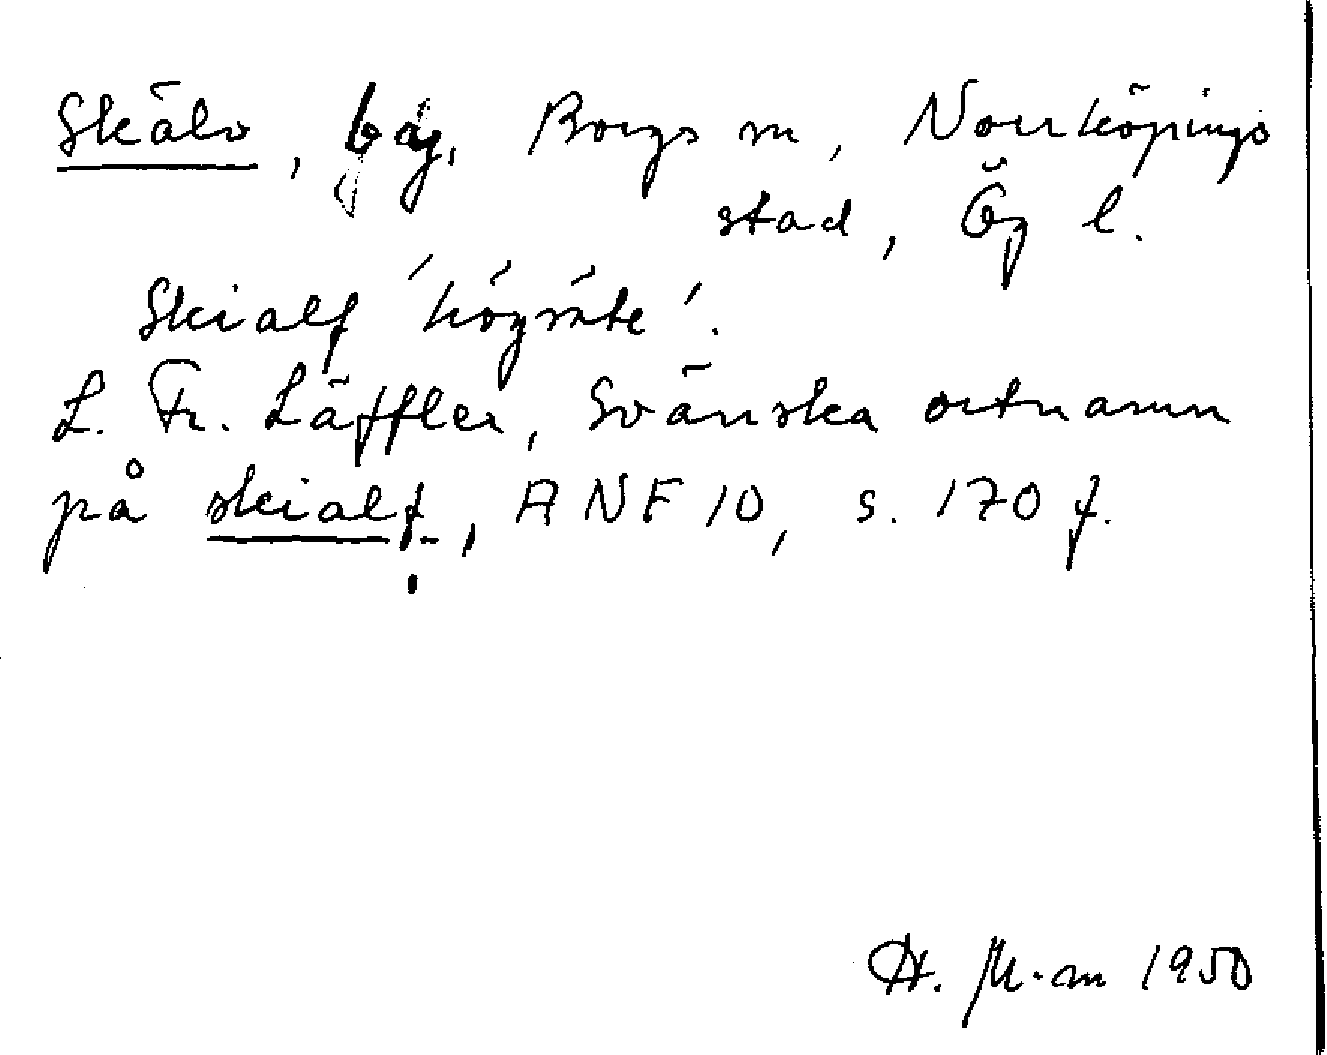 Skälv, by, Borgs sn, Norrköpings
stad, Ög l.
Skialf 'högsäte'.
L. Fr. Läffler, Svänska ortnamn
på skialf, ANF 10, s. 170 f.
H. M-m 1950